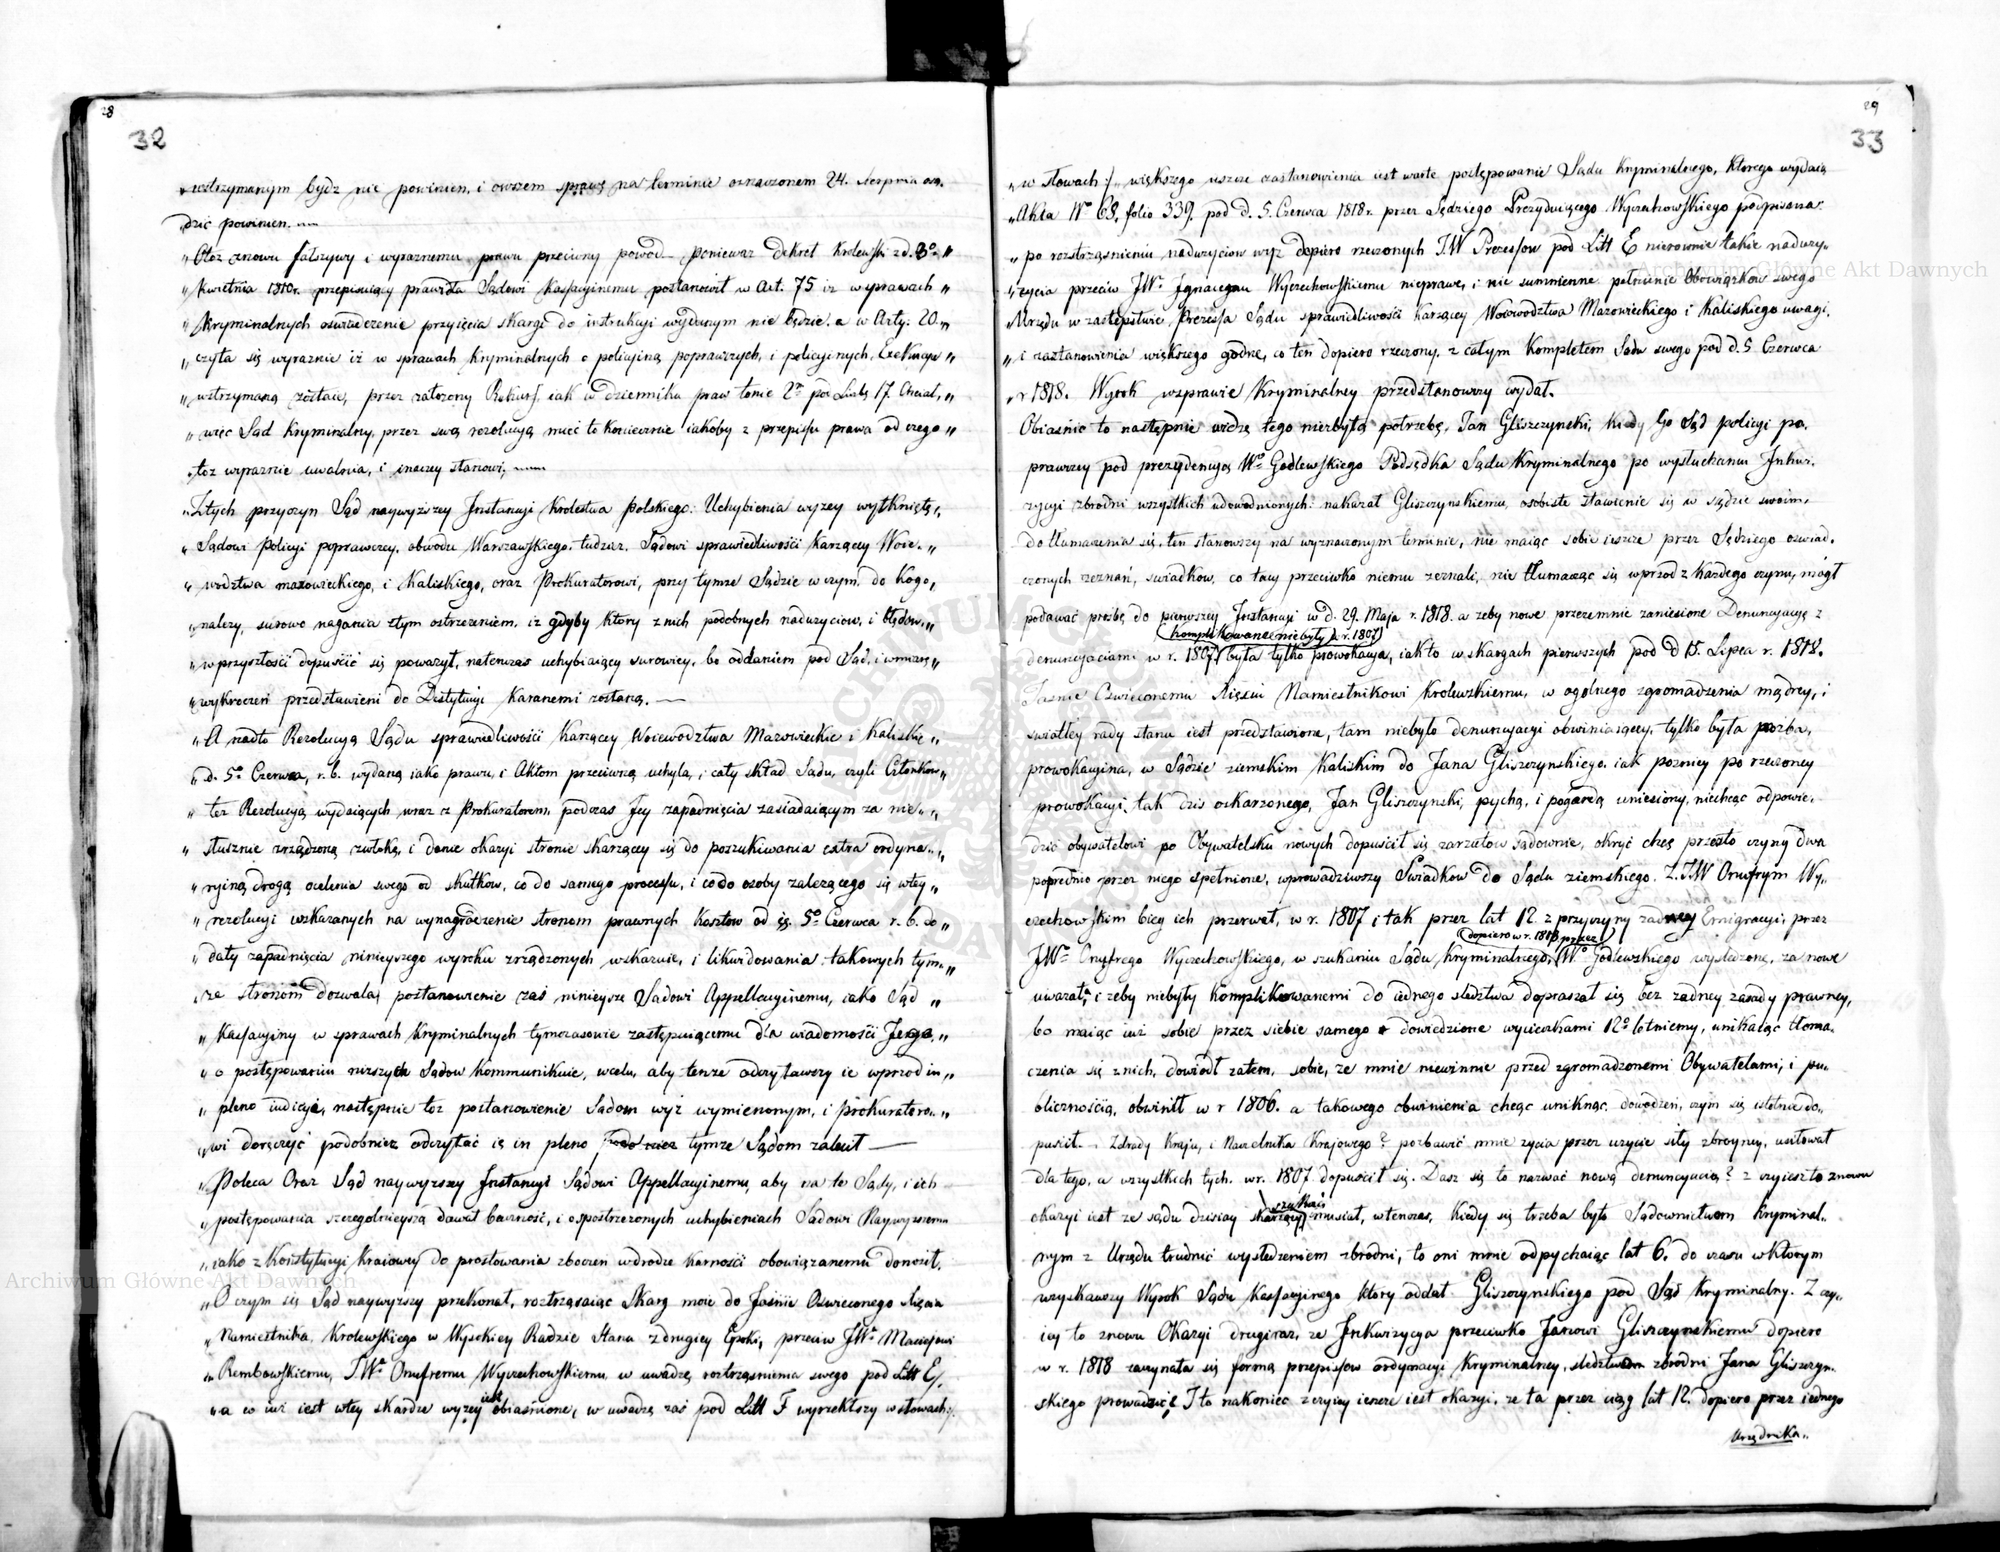 28
32
„wstrzymanym bydz nie powinien, i owszem sprawę na terminie oznaczonem 24. sierpnia osą„
dzić powinien.
„Otoz znowu fałszywy i wyraznemu prawu przeciwny powod ponieważ Dekret Krolewski z d. 3o „
„Kwietnia 1810r. przepisuiący prawidła Sądowi Kassacyinemu postanowił w Art. 75 iz w sprawach „
„Kryminalnych oswiadczenie przyięcia skargi do instrukcyi wydanym nie będzie. a w Arty: 20. „
„czyta się wyraznie iż w sprawach kryminalnych o policyiną poprawczych, i policyinych, Exekucya „
„wstrzymaną zostaie, przez założony Rekurs, iak w dzienniku praw tomie 2m pod Liczbą 17. Chciał, „
„więc Sąd Kryminalny, przez swą rezolucyą mieć to koniecznie iakoby z przepisu prawa od czego „
„toz wyraznie uwalnia, i inaczey stanowi,
„Z tych przyczyn Sąd naywyższey Instancyi Krolestwa Polskiego. Uchybienia wyzey wytknięte „
„Sądowi Policyi poprawczey, obwodu Warszawskiego, tudziez, Sądowi sprawiedliwości Karzącey Woie. „
„wodztwa mazowieckiego, i Kaliskiego, oraz Prokuratorowi, przy tymze Sądzie w czym do kogo „
„nalezy, surowo nagania z tym ostrzezeniem, iz gdyby ktory z nich podobnych naduzyciow, i błędow, „
„w przyszłości dopuścić się powazył, natenczas uchybiaiący surowiey, bo oddaniem pod Sąd, i wmiarę „
„wykroczeń przedstawieni do Destytucyi karanemi zostaną. —
„A nadto Rezolucyą Sądu sprawiedliwości Karzącey Woiewodztwa Mazowieckie i Kaliskie „
„d. 5o Czerwca, r. b. wydaną iako prawu, i Aktom przeciwną uchyla, i cały skład Sądu, czyli Członkow „
„tez Rezolucyą wydaiących wraz z Prokuratorem, podczas Jey zapadnięcia zasiadaiącym za nie „
„słusznie zrządzoną zwłokę, i danie okazyi stronie skarzącey się do poszukiwania extra ordyna „
„ryiną drogą ocelenia swego od skutkow, co do samego processu, i co do osoby zalezącego się w tey „
„rezolucyi wskazanych na wynagrodzenie stronom prawnych kosztow od 5o Czerwca r. b. do „
„daty zapadnięcia ninieyszego wyroku zrządzonych wskazuie, i likwidowania takowych tym „
„ze stronom dozwala, postanowienie zaś ninieysze Sądowi Appellacyinemu, iako Sąd „
„Kassacyiny w sprawach kryminalnych tymczasowie zastępuiącemu dla wiadomości Jego, „
„o postępowaniu nizszych Sądow kommunikuie, w celu, aby tenze odczytawszy ie wprzod in „
„pleno iudicyi, następnie toz postanowienie Sądom wyż wymienionym, i prokuratoro „
„wi doręczyć podobniez odczytać ie in pleno tymze Sądom zalecił —
„Poleca Oraz Sąd naywyzszey Instancyi Sądowi Appellacyinemu, aby na te Sądy, i ich
„postępowania szczegolnieyszą dawał baczność, i o spostrzezonych uchybieniach Sądowi Naywyzszemu
„iako z Konstytucyi kraiowey do prostowania zboczeń w drodze karności obowiązanemu donosił.
„O czym się Sąd naywyzszy przekonał, roztrząsaiąc Skargi moie do Jaśnie Oswieconego Xięcia
„Namiestnika Krolewskiego w Wysokiey Radzie Stanu z drugiey Epoki, przeciw JWm Maciejowi
„Rembowskiemu, JWm Onufremu Wyczechowskiemu w uwadze roztrząsnienia swego pod Litt E/.
„a co iuż iest w tey skardze wyzey iuż obiasnione, w uwadze zaś pod Litt F wyrzekłszy w słowach:/.
29
33
„w słowach:/ „większego uszcze zastanowienia iest warte postępowanie Sądu Kryminalnego, ktorego wydaią
„Akta No 68, folio 339. pod d. 5. Czerwca 1818r. przez Sędziego Prezyduiącego Wyczechowskiego podpisana:
„po rozstrząsnieniu naduzyciow wyz dopiero rzeczonych J.W Prezesow pod Litt E nierownie takie naduzy„
„zycia przeciw JWm Ignacemu Wyczechowskiemu nieprawe, i nie summienne pełnienie Obowiązkow swego
„Urzędu w zastępstwie Prezesa Sądu sprawiedliwości karzącey Woiewodztwa Mazowieckiego i Kaliskiego uwagi,
„i zastanowienia większego godne, co ten dopiero rzeczony, z całym kompletem Sądu swego pod d. 5 Czerwca
„r 1818. Wyrok wsprawie Kryminalney przedstanowczy wydał.
Obiaśnić to następnie widzę tego niezbytą potrzebę, Jan Gliszczynski, kiedy Go Sąd policyi po„
prawczey pod prezydencyą Wo Godlewskiego Podsędka Sądu Kryminalnego po wysłuchaniu Inkwi„
zycyi zbrodni wszystkich udowodnionych: nakazał Gliszczynskiemu, osobiste stawienie się w sądzie swoim,
do tłumaczenia się, ten stanowszy na wyznaczonym terminie, nie maiąc sobie ieszcze przez Sędziego oświad„
czonych zeznań, swiadkow, co tacy przeciwko niemu zeznali, nie tłumacząc się wprzod z kazdego czynu, mógł
podawać prosbę do pierwszey Instancyi w d. 29. Maja r. 1818. a zeby nowe przezemnie zaniesione Denuncyacye z
komplikowane niebyły z r. 1807
denuncyaciami w r. 1807. była tylko prowokacya, iak to w skargach pierwszych pod d 15. Lipca r. 1818.
Jasnie Oswieconemu Xięciu Namiestnikowi Krolewskiemu, w ogólnego zgromadzenia mądrey, i
swiatłey rady stanu iest przedstawione, tam niebyło denuncyacyi obwiniaiącey, tylko była prozba,
prowokacyina, w Sądzie ziemskim Kaliskim do Jana Gliszczynskiego. iak pozniey po rzeczoney
prowokacyi, tak dzis oskarzonego, Jan Gliszczynski, pychą, i pogardą uniesiony, niechcąc odpowie„
dzić obywatelowi po Obywatelsku nowych dopuscił się zarzutow sądownie, okryć chcę przeszło czyny dwa
poprzednio przez niego spełnione, wprowadziwszy Swiadkow do Sądu ziemskiego. Z JW Onufrym Wy„
czechowskim bieg ich przerwał, w r. 1807 i tak przez lat 12. z przyczyny zadney Emigracyi, przez
dopiero w r. 1818 przez
JWo Onufrego Wyczechowskiego, w szukaniu Sądu Kryminalnego, Wo Godlewskiego wysledzone, za nowe
uwazał, i zeby niebyły komplikowanemi do iednego sledztwa dopraszał się bez zadney zasady prawney,
bo maiąc iuż sobie przez siebie samego dowiedzione wycieczkami 12o letniemy, unikaiąc tłoma„
czenia się z nich, dowiódł zatem, sobie, ze mnie niewinnie przed zgromadzonemi Obywatelami, i pu„
blicznością, obwinił w r 1806. a takowego obwinienia chcąc uniknąc dowodzeń, czym się istotnie do„
puscił. Zdrady Kraju, i Naczelnika Krajowego? pozbawić mnie zycia przez uzycie siły zbroyney, usiłował
dla tego, a wszystkich tych. w r. 1807. dopuścił się. Dasz się to nazwać nową denuncyacią? z czyiesz to znowu
szukać
okazyi iest ze sądu dzisiay musiał, w tenczas, kiedy się trzeba było Sądownictwom kryminal„
nym z Urzędu trudnić wysledzeniem zbrodni, to oni mnie odpychaiąc lat 6. do czasu w ktorym
wzyskawszy Wyrok Sądu Kassacyinego ktory oddał Gliszczynskiego pod Sąd Kryminalny. Z czy„
iey to znowu Okazyi drugiraz, ze Inkwizycya przeciwko Janowi Gliszczynskiemu dopiero
w r. 1818 zaczynała się formą przepisow ordynacyi Kryminalney, sledztwem zbrodni Jana Gliszczyn„
skiego prowadzić? I to nakoniec z czyiey ieszcze iest okazyi, ze ta przez ciąg lat 12. dopiero przez iednego
Urzędnika„
Archiwum Główne Akt Dawnych
Archiwum Główne Akt Dawnych